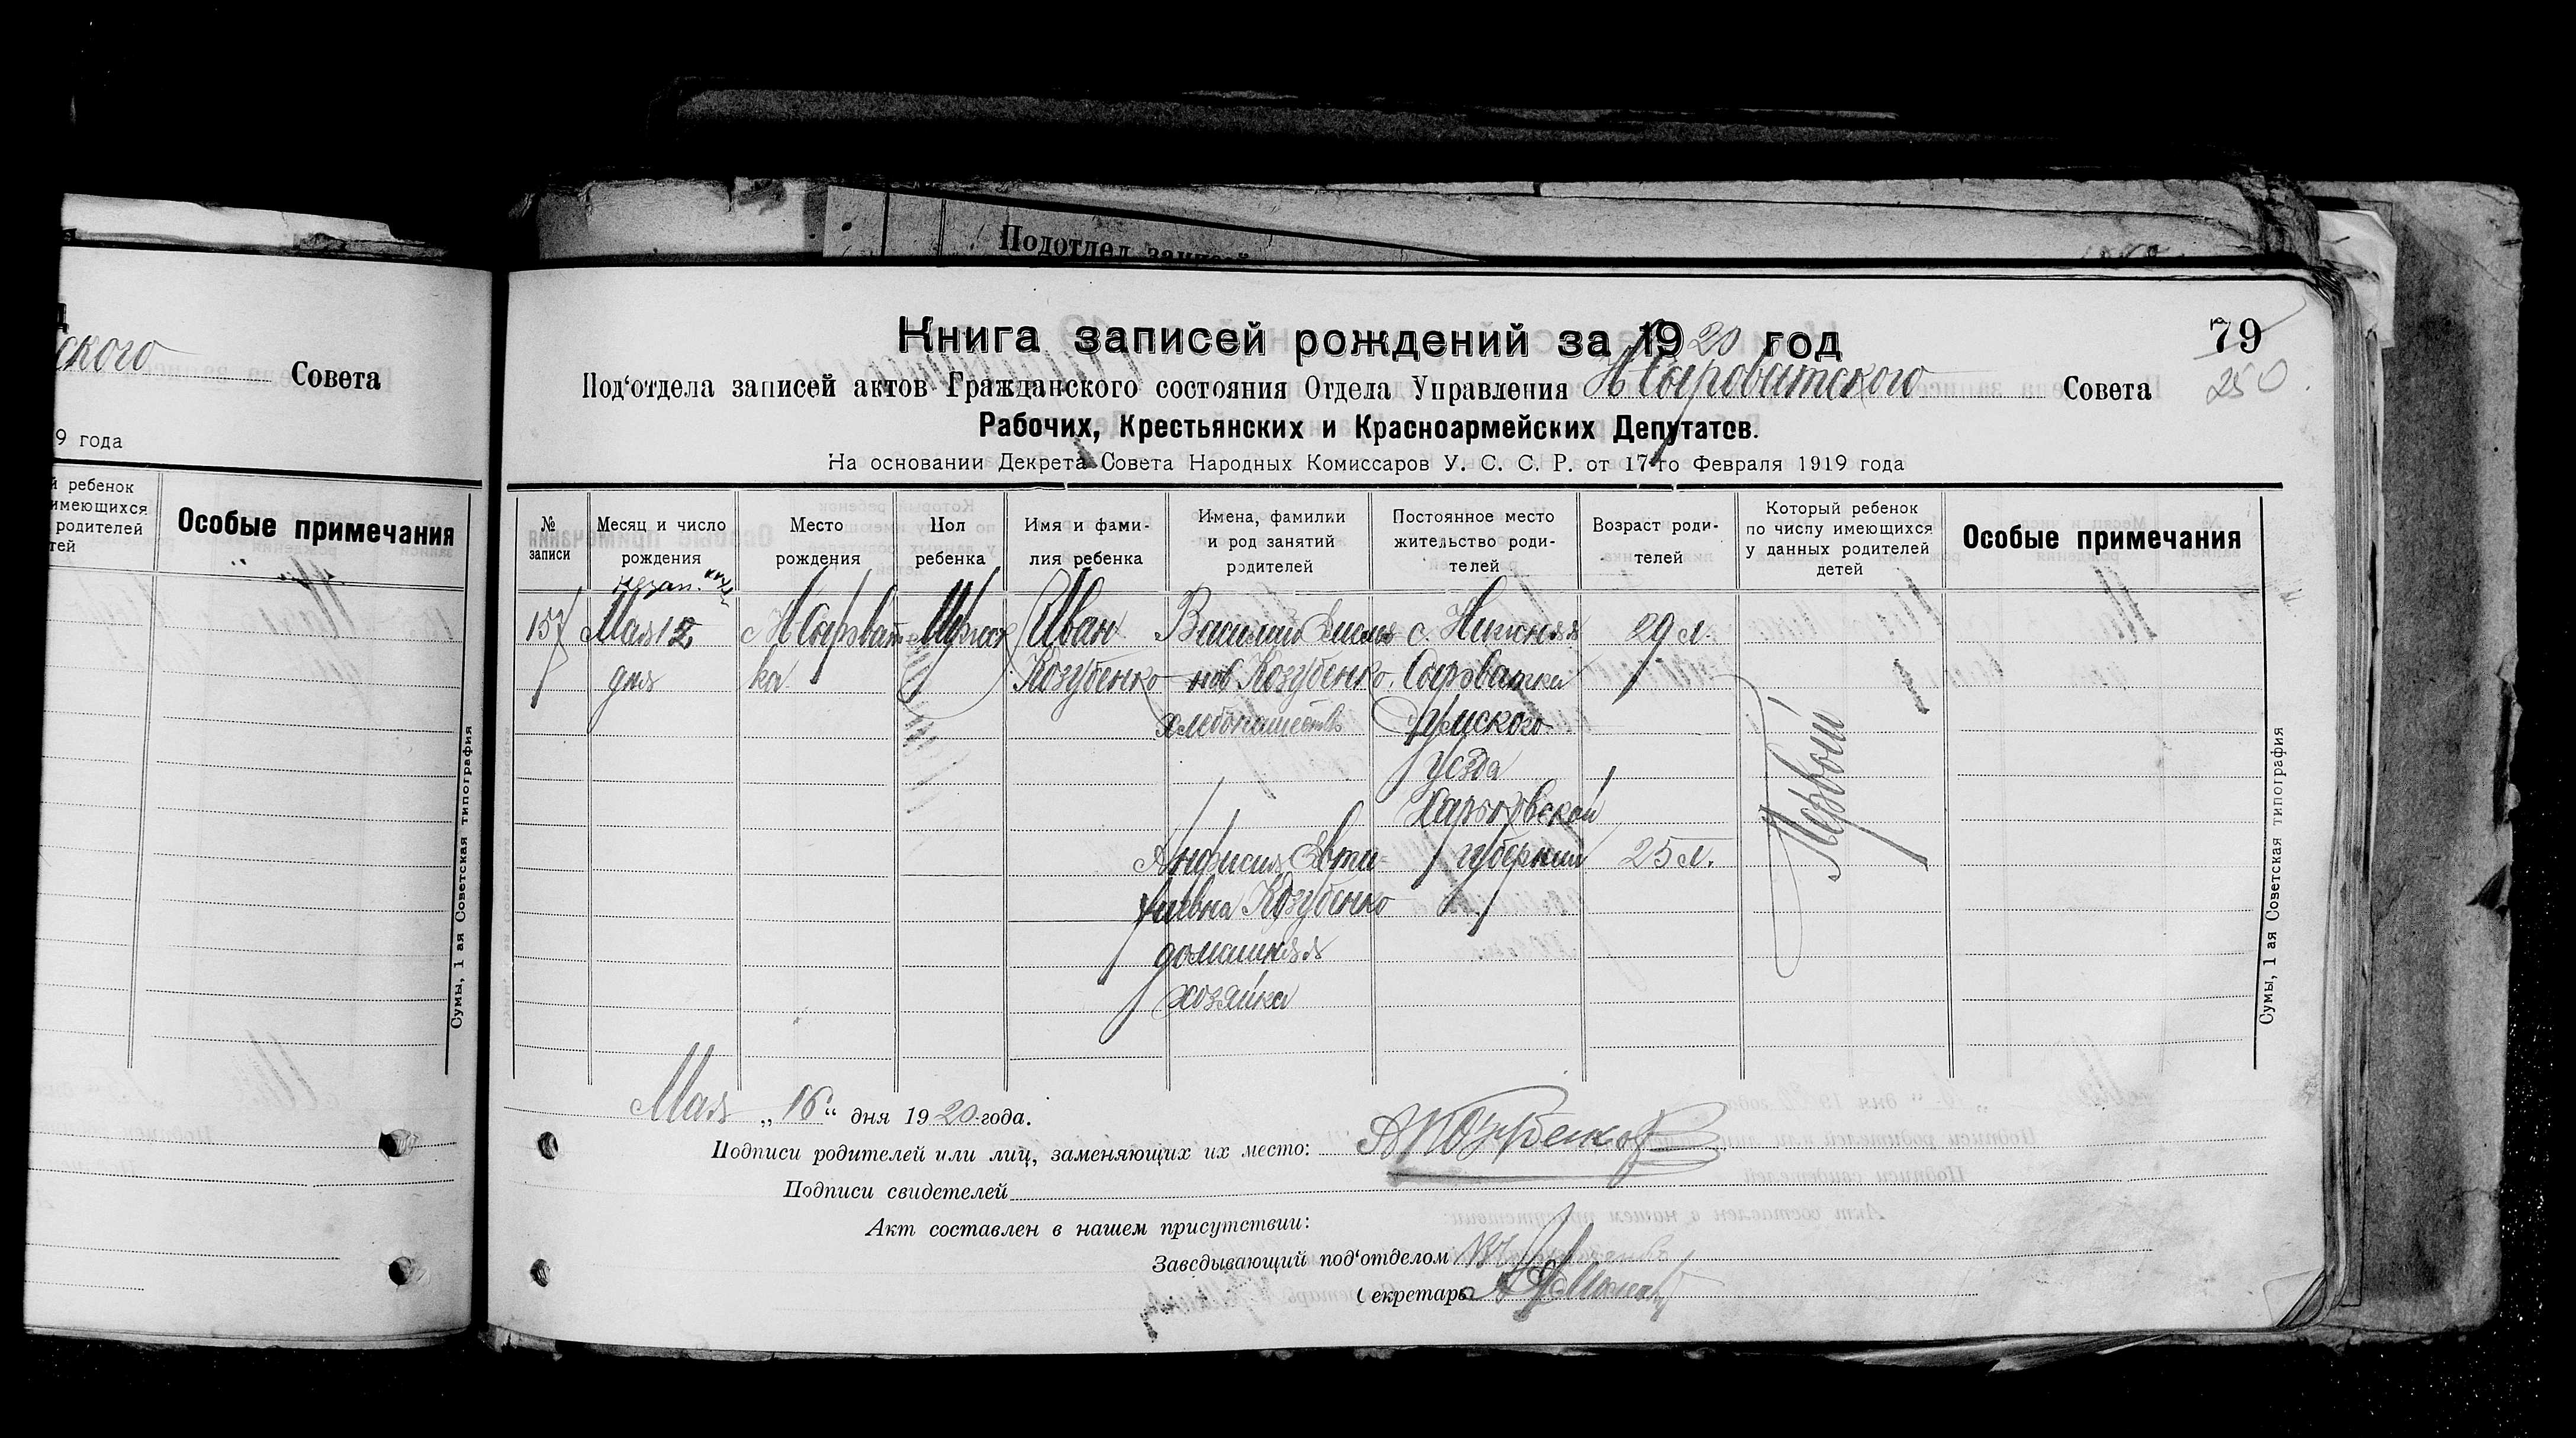 Подотдел записей
ского Совета
9 года
й ребенок
имеющихся
родителей
тей
Особые примечания
Сумы, 1 ая Советская типография
79
250
Книга записей рождений за 1920 год
Под‘отдела записей актов Гражданского состояния Отдела Управления Н Сыроватского Совета
Рабочих, Крестьянских и Красноармейских Депутатов.
На основании Декрета Совета Народных Комиссаров У. С. С. Р. от 17-го Февраля 1919 года
№ записи
Месяц и число рождения
Место рождения
Пол ребенка
Имя и фами-
лия ребенка
Имена, фамилии
и род занятий
родителей
Постоянное место
жительство роди-
телей
Возраст роди-
телей
Который ребенок
по числу имеющихся
у данных родителей
детей
Особые примечания
157 Мая 12 Н Сыроват Мужск Иван Василий Емелья с. Нижняя 29 л.
дня ка Козубенко нов Козубенко. Сыроватка
хлебопашество Сумского
уезда
Харьковской
Анфисия Евти- губернии 25 л.
хиевна Козубенко
домашняя
хозяйка
Первый
Сумы, 1 ая Советская типография
Мая „16“ дня 1920 года.
Подписи родителей или лиц, заменяющих их место: Козубенко
Подписи свидетелей
Акт составлен в нашем присутствии:
Заведывающий под‘отделом
Секретарь